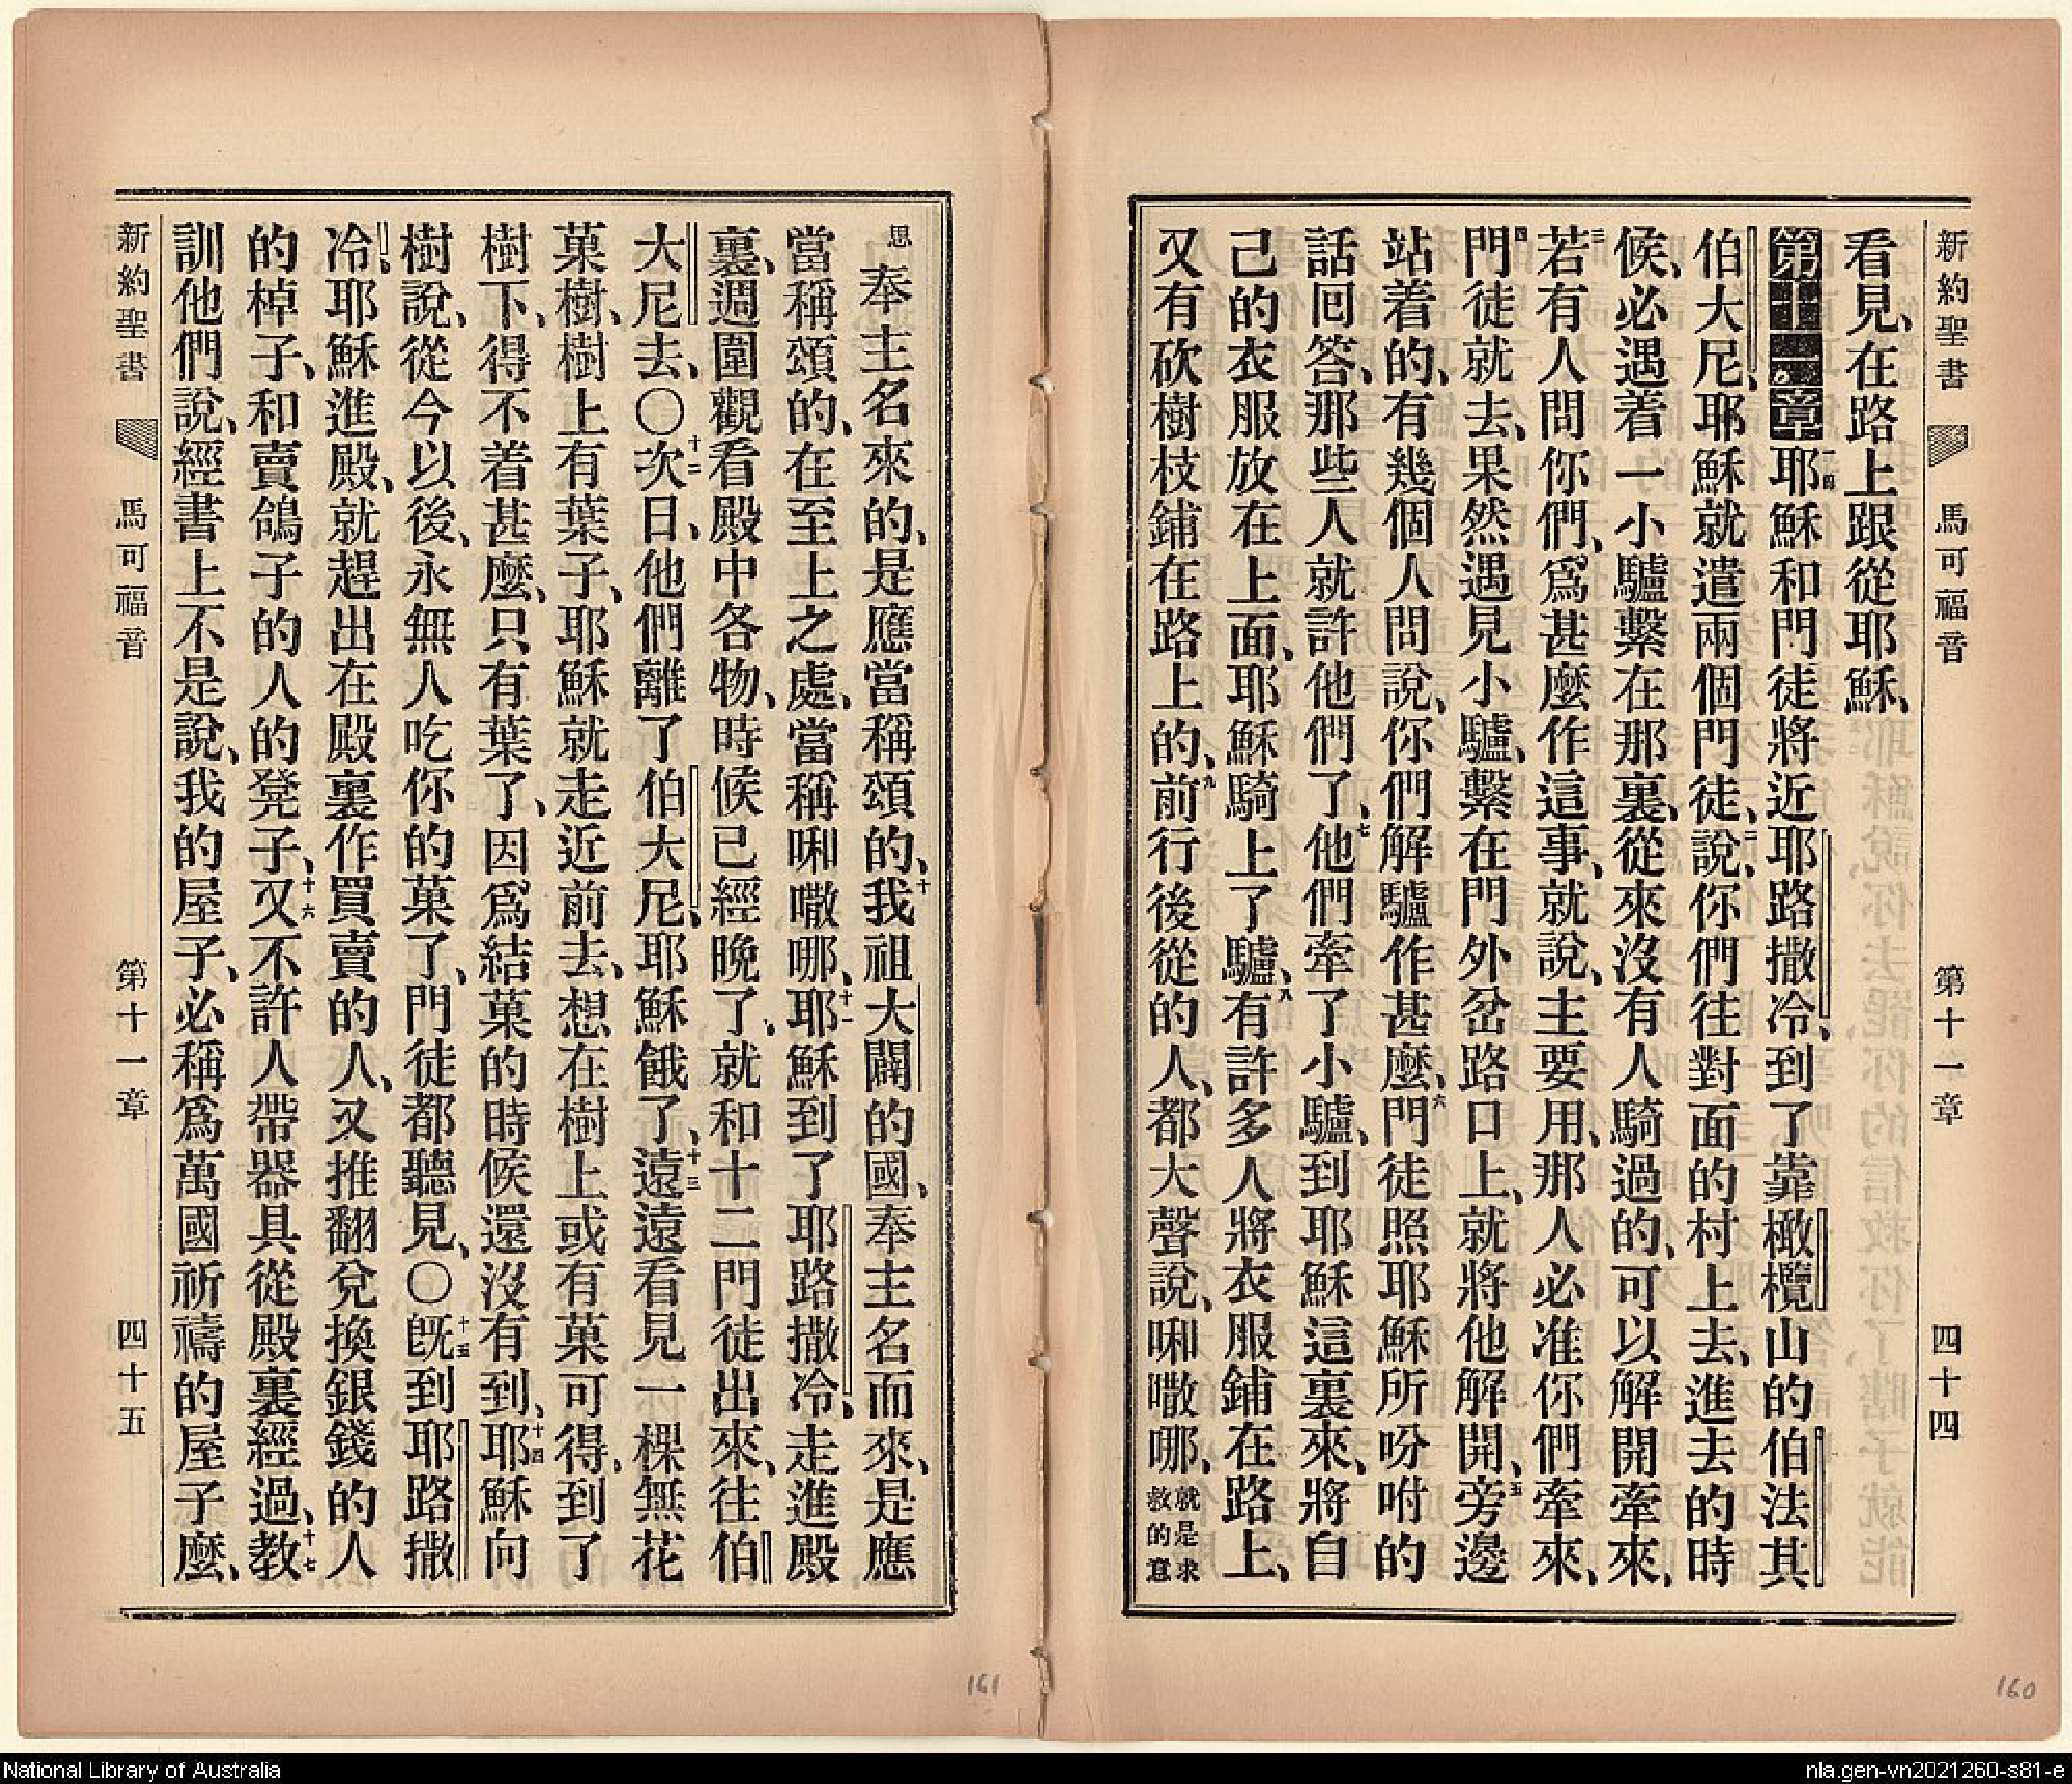 新約聖書 馬可福音 第十一章 四十四
看見、在路上跟從耶穌、
第十一章一耶穌和門徒將近耶路撒冷、到了靠橄欖山的伯法其
伯大尼、耶穌就遣兩個門徒、二說、你們往對面的村上去、進去的時
候、必遇着一小驢繫在那裏、從來沒有人騎過的、可以解開牽來、
三若有人問你們、爲甚麼作這事、就說、主要用、那人必准你們牽來、
四門徒就去、果然遇見小驢、繫在門外岔路口上、就將他解開、五旁邊
站着的、有幾個人問說、你們解驢作甚麼、六門徒照耶穌所吩咐的
話回答、那些人就許他們了、七他們牽了小驢、到耶穌這裏來、將自
己的衣服放在上面、耶穌騎上了驢、八有許多人將衣服鋪在路上、
又有砍樹枝鋪在路上的、九前行後從的人、都大聲說、㗏㘔哪、就是求救的意
思 奉主名來的、是應當稱頌的、十我祖大闢的國、奉主名而來、是應
當稱頌的、在至上之處、當稱㗏㘔哪、十一耶穌到了耶路撒冷、走進殿
裏、週圍觀看殿中各物、時候已經晚了、就和十二門徒出來、往伯
大尼去、〇十二次日、他們離了伯大尼、耶穌餓了、十三遠遠看見一棵無花
菓樹、樹上有葉子、耶穌就走近前去、想在樹上或有菓可得、到了
樹下、得不着甚麼、只有葉了、因爲結菓的時候還沒有到、十四耶穌向
樹說、從今以後、永無人吃你的菓了、門徒都聽見、〇十五旣到耶路撒
冷、耶穌進殿、就趕出在殿裏作買賣的人、又推翻兌換銀錢的人
的棹子、和賣鴿子的人的凳子、十六又不許人帶器具從殿裏經過、十七教
訓他們說、經書上不是說、我的屋子、必稱爲萬國祈禱的屋子麼、
新約聖書 馬可福音 第十一章 四十五
161
160
National Library of Australia
nla.gen-vn2021260-s81-e